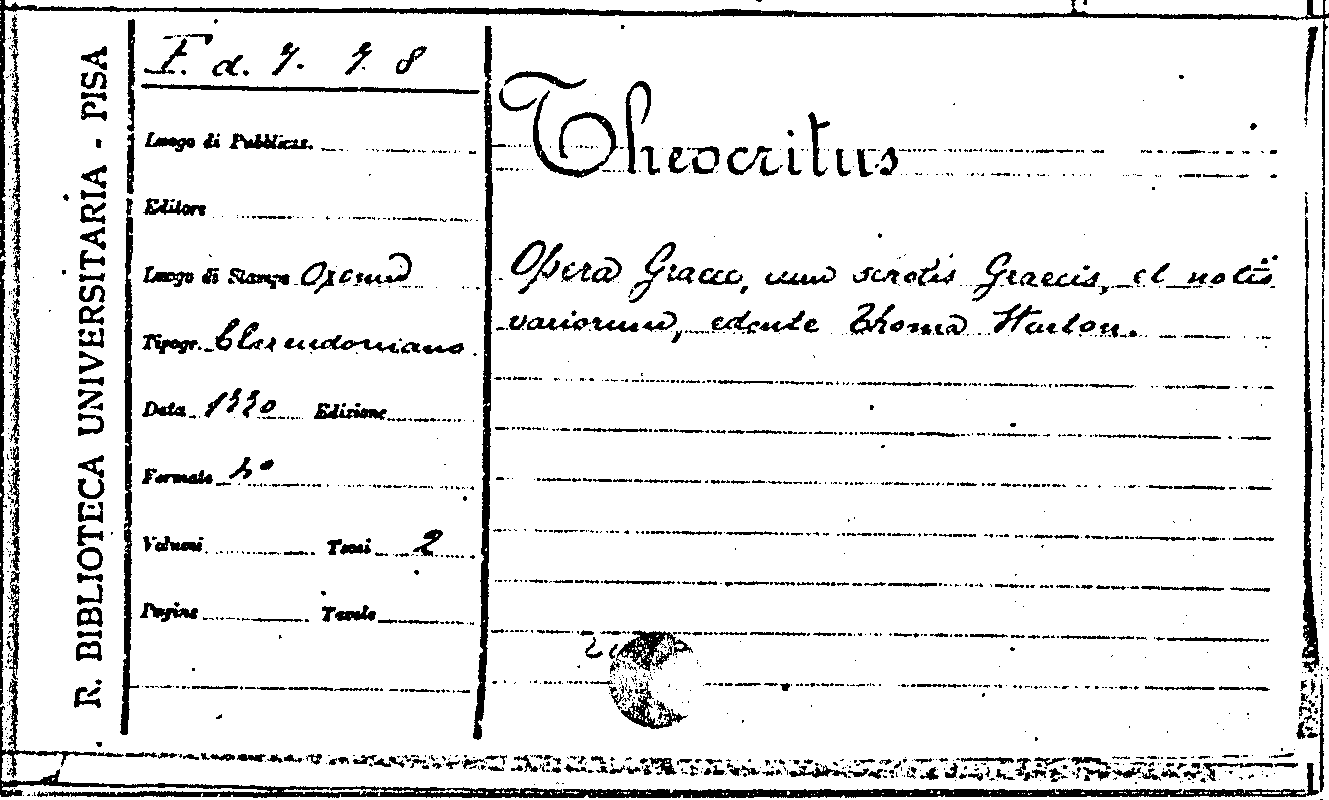 R. BIBLIOTECA UNIVERSITARIA - PISA
F. d. 7. 7. 8
Luogo di Pubblicaz.
Editore
Luogo di Stampa
Tipogr. Clarendoniano
Data 1770 Edizione
Formato 4°
Volumi Tomi 2
Pagine Tavole
Theocritus
Opera Graece, cum scrotis Graecis, et notis
variorum, edente Thoma Warton.